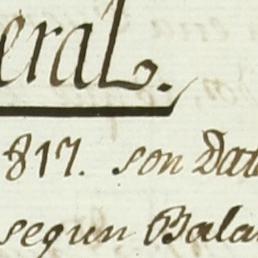 eral.
817. son Dat
segun Bala